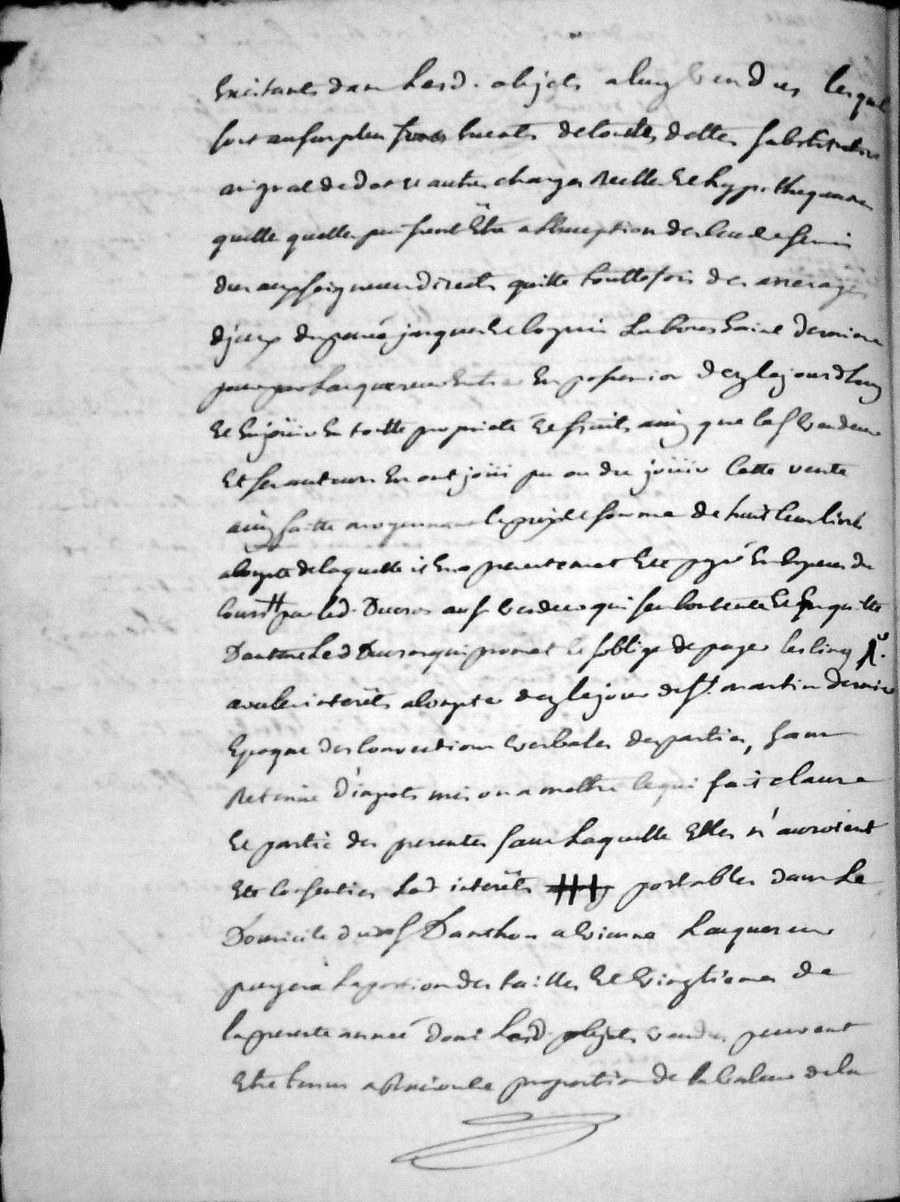 Existants dans lesd. objets a luy vendus lesquels
sont au surplus francs exents de toutes dettes substitution
augment de dot et autres charges reelles et hyppothequaires
quelle quelles puissent être a l'exception des
dus aux seigneurs directs quitte touttefois des arrerages
d'jceux du passé jusques et compris la toussaint derniere
pour par l'acquereur entrer en possession dez le jourd'huy
et en jouir en toutte proprieté et fruits ainsy que le sr vendeur
et ses auteurs en ont joui pu ou du jouir cette vente
ainsy faitte moyennant le prix et somme de huit cent livres
a compte de laquelle il en a presentement eté payé en especes de
cours par led. Ducros au sr vendeur qui s'en contente et en quitte
d'autant led Ducros qui promet et s'oblige de payer les cinq
avec les interêts a compter dez le jour de st martin dernier
Epoque des conventions verbales des parties, sans
retenue d'impots mis ou a mettre ce qui fait clause
et partie des presentes sans laquelle elles n'auroient
eté consenties Lesd interêts portables dans le
Domicile dud sr Danthon a vienne L'acquereur
payera la portion des tailles et vingtiemes de
la presente année dont lesd. objets vendus peuvent
etre tenus a raison et proportion de la valeur de la